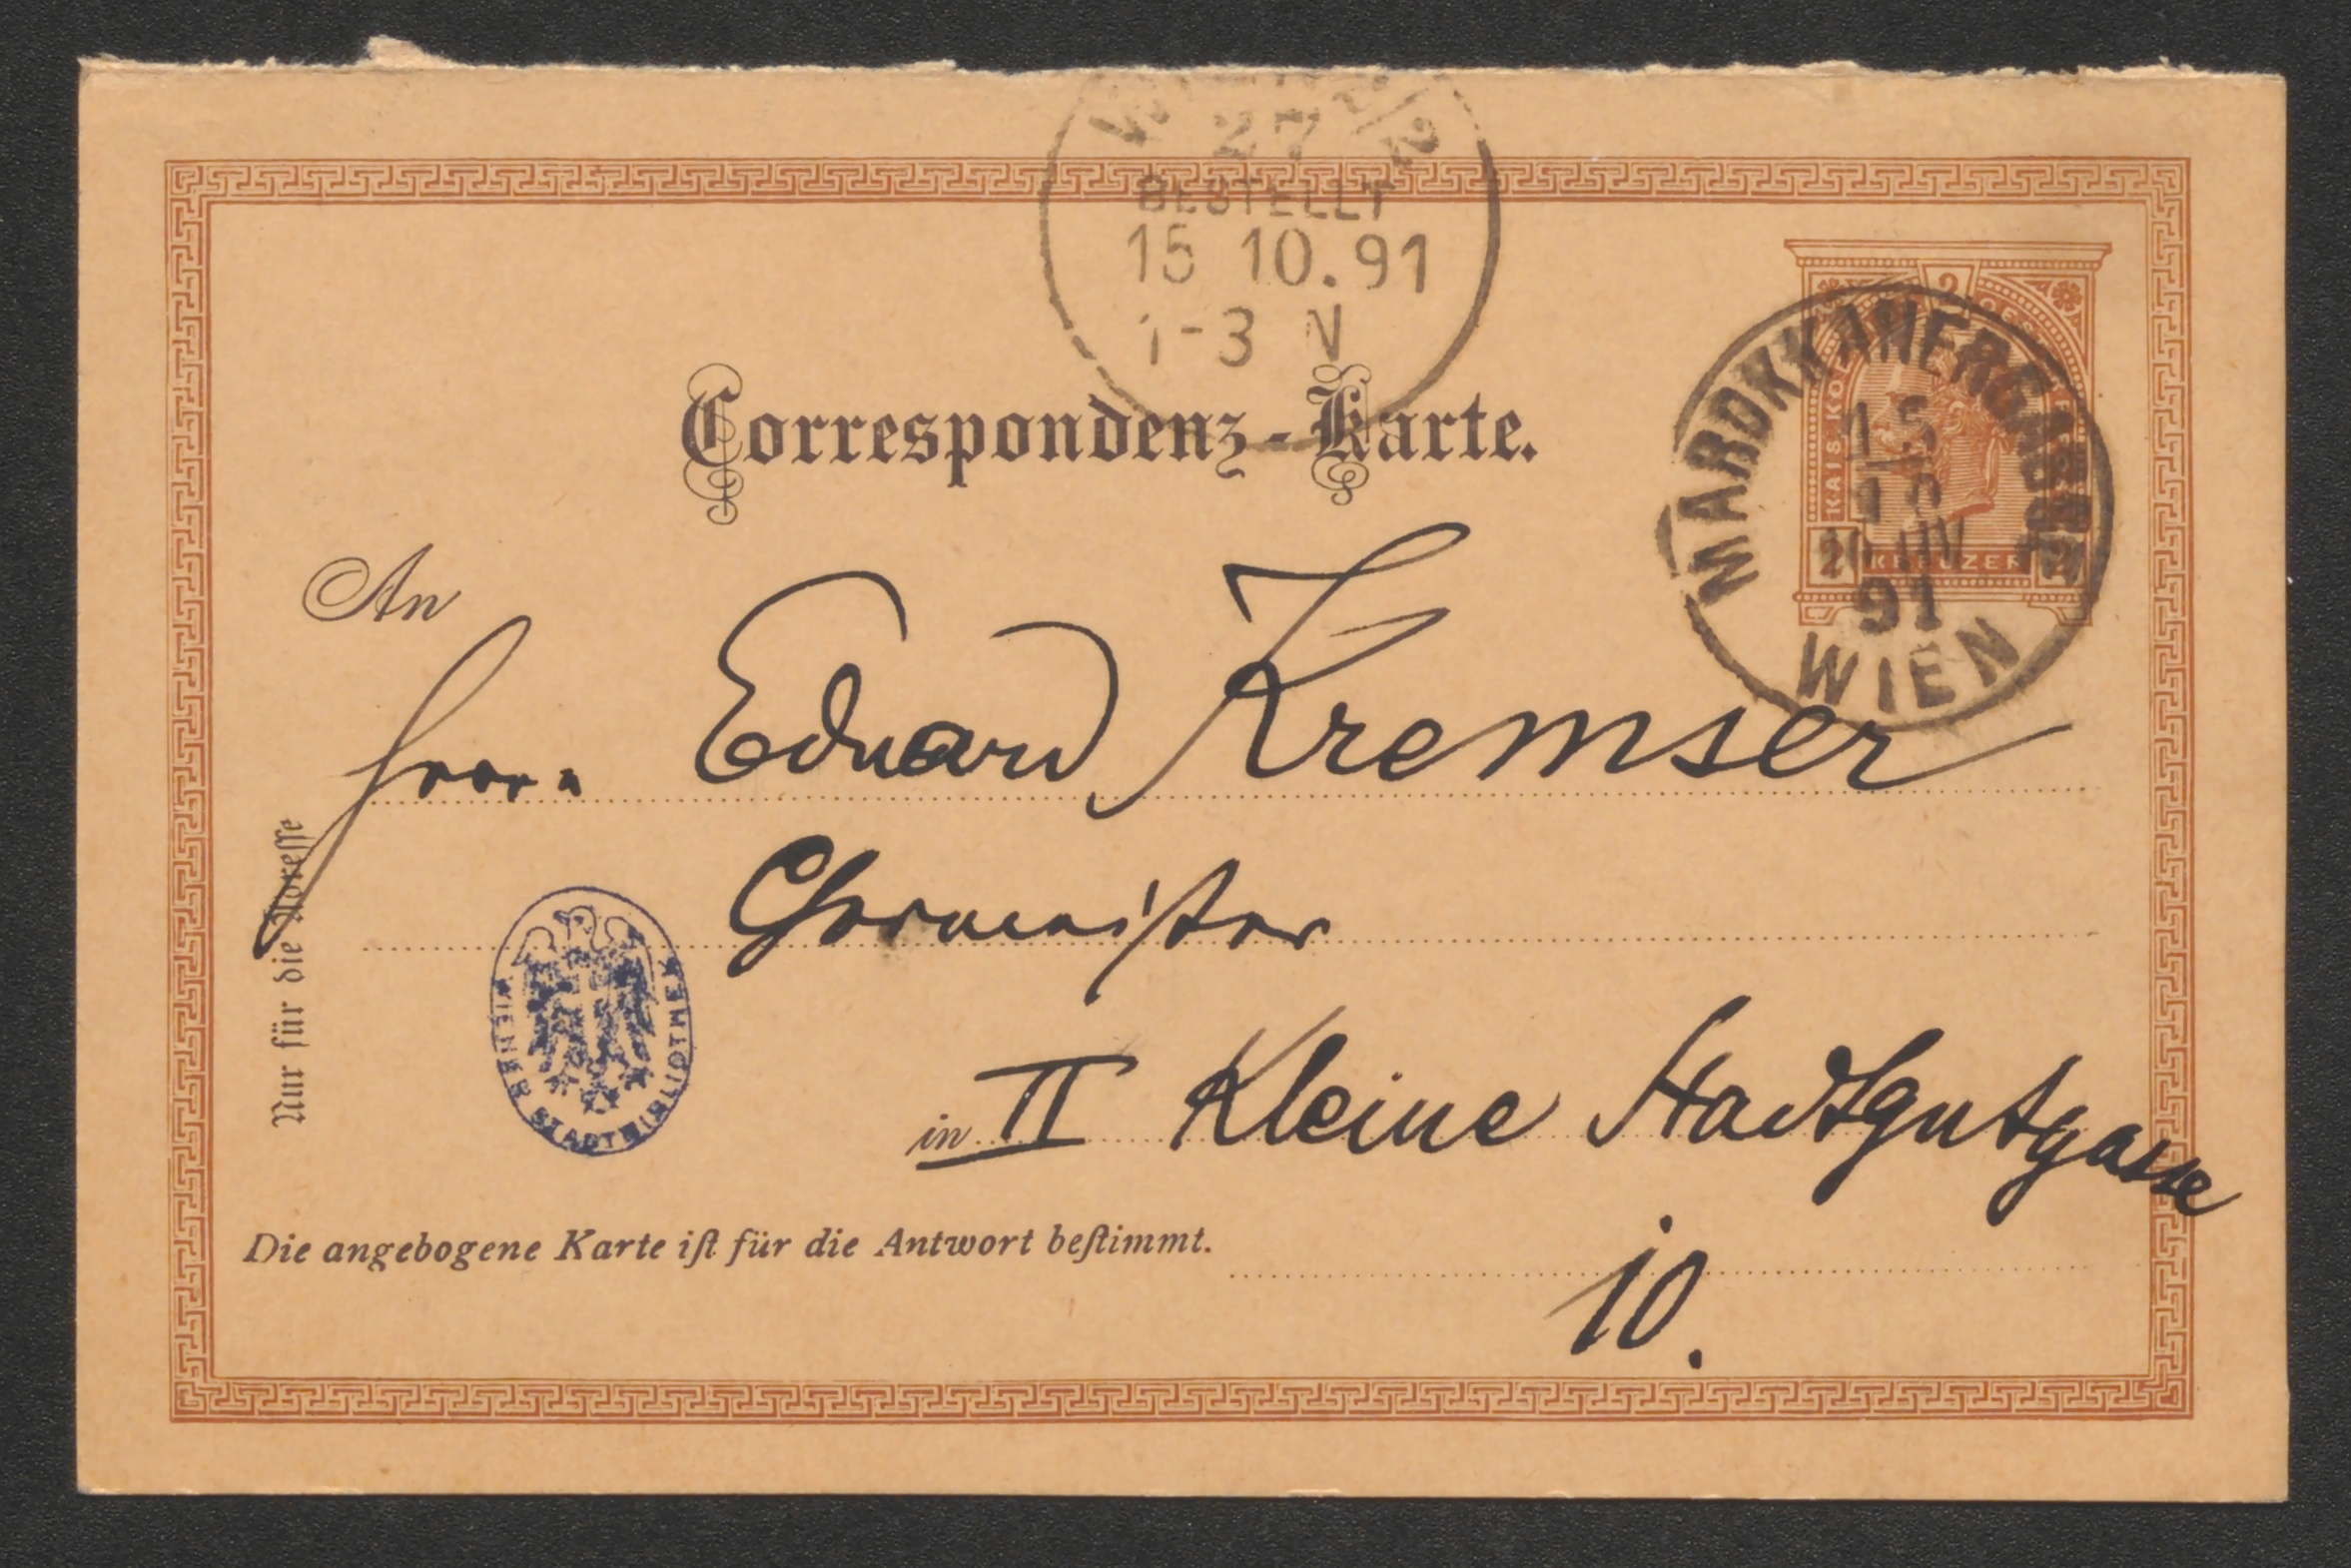 27
BESTELLT
15 10.91
1-3 N
Correspondenz-Karte.
2
KREUZER
MAROKKANERGASSE
15
10
91
WIEN
An
Herrn Eduard Kremser
Chormeister
in II Kleine Stadtgutgasse
10.
Nur für die Adresse
WIENER STADTBIBLIOTHEK
Die angebogene Karte iſt für die Antwort beſtimmt.